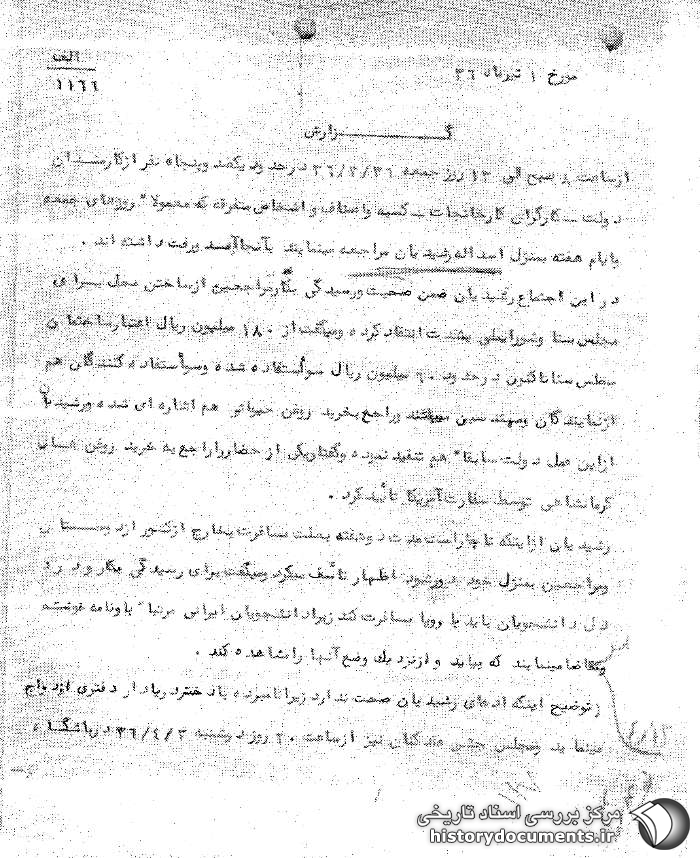 الف
۱۱۶۶
مورخ ۱ تیرماه ۳۶
گــــــزارش
از ساعت ۸ صبح الی ۱۲ روز جمعه ۳۶/۳/۳۱ در حدود یکصد و پنجاه نفر از کارمندان
دولت ــ کارگران کارخانجات ــ کسبه و اصناف و اشخاص متفرقه که معمولا" روزهای جمعه
و ایام هفته بمنزل اسداله رشیدیان مراجعه مینمایند بآنجا آمد و رفت داشته اند .
در این اجتماع رشیدیان ضمن صحبت و رسیدگی بکار مراجعین از ساختن محل برای
مجلس سنا و شورایملی بشدت انتقاد کرده و میگفت از ۱۸۰ ملیون ریال اعتبار ساختمان
مجلس سنا تاکنون در حدود ۶۰ ملیون ریال سوأستفاده شده و سوأستفاده کنندگان هم
از نمایندگان و مهندسین میباشند و راجع بخرید روغن حیوانی هم اشاره ای شده و رشیدیان
از این عمل دولت سابقا" هم تنقید نموده و گفتار یکی از حضار را راجع به خرید روغن
کرمانشاهی توسط سفارت آمریکا تأئید کرد .
رشیدیان از اینکه ناچار است مدت دو هفته بعلت مسافرت بخارج از کشور از دوستان
و مراجعین بمنزل خود دور شود اظهار تأسف میکرد و میگفت برای رسیدگی بکار و درد
دل دانشجویان باید باروپا مسافرت کند زیرا دانشجویان ایرانی مرتبا" باو نامه نوشته
و تقاضا مینمایند که بیاید و از نزدیک وضع آنها را مشاهده کند .
توضیح اینکه ادعای رشیدیان صحت ندارد زیرا نامبرده با دختر دریادار دفتری ازدواج
مینماید و مجلس جشن عقدکنان نیز از ساعت ۲۰ روز دوشنبه ۳۶/۴/۳ در باشگاه
مرکز بررسی اسناد تاریخی
historydocuments.ir